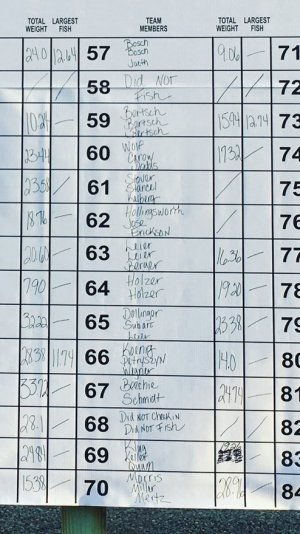 TOTAL WEIGHT LARGEST FISH TEAM MEMBERS TOTAL WEIGHT LARGEST FISH
24.0 12.64 57 Bosch 9.06 — 71
Bosch
58 Did NOT 72
Fish
10.24 — 59 Bertsch 15.94 12.74 73
Bertsch
Bertsch
23.44 60 Wolf 17.32 — 74
61 Stover 75
18.76 — 62 Hollingsworth 76
Jose
Erickson
20.60 — 63 Leier 16.36 — 77
Leier
Berger
7.90 — 64 Holzer 19.20 — 78
Holzer
32.22 — 65 23.38 79
28.38 11.74 66 Koenig 14.0 — 80
Wegner
33.72 — 67 24.74 81
Schmidt
28.1 68 Did NOT Check in 82
Did NOT Fish
24.84 — 69 King 83
Keller
15.38 — 70 Morris 84
Miller
Mertz